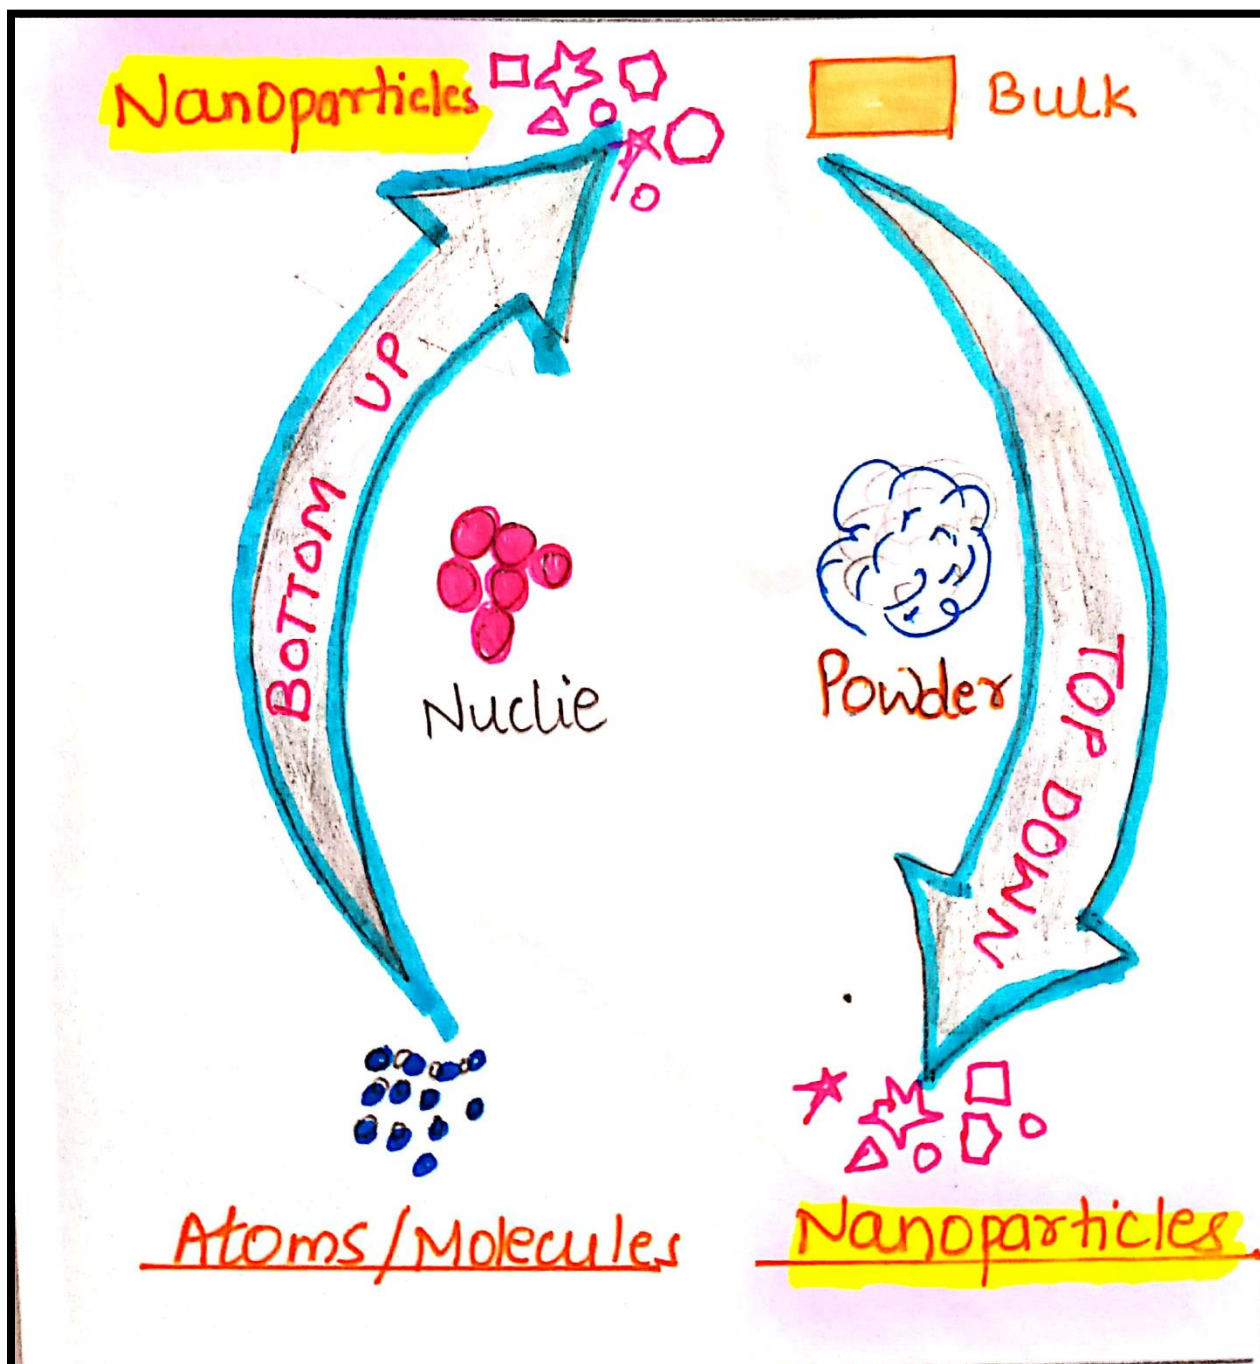 Nanoparticles
Bulk
BOTTOM UP
Nuclie
Powder
TOP DOWN
Atoms/Molecules
Nanoparticles